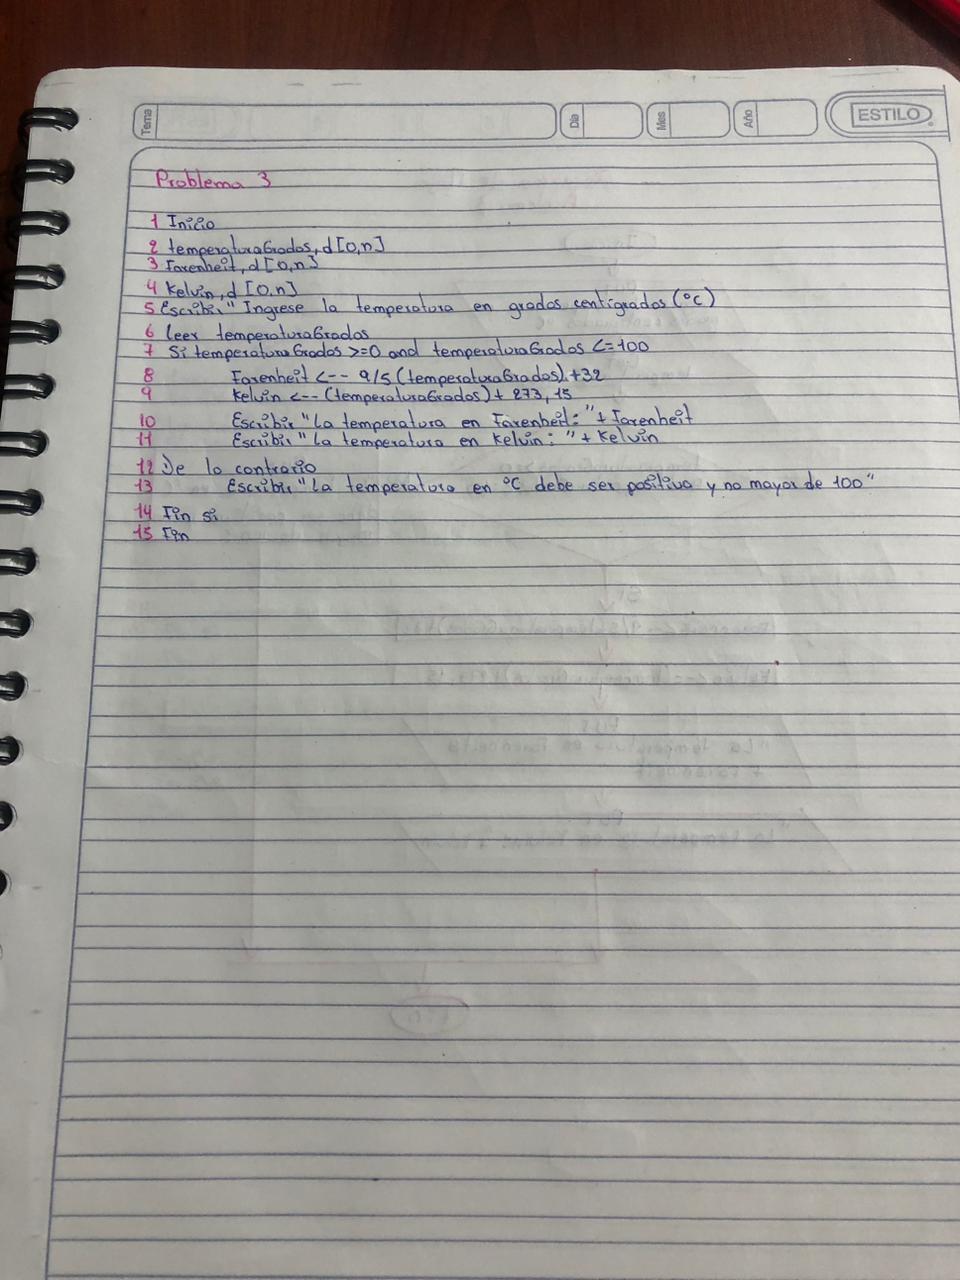 Tema
Día
Mes
Año
ESTILO
Problema 3
1 Inicio
2 temperaturaGrados, d[0,n]
3 Farenheit, d[0,n]
4 Kelvin, d[0,n]
5 Escribir "Ingrese la temperatura en grados centigrados (°C)
6 Leer temperaturaGrados
7 Si temperaturaGrados >=0 and temperaturaGrados <=100
8 Farenheit <-- 9/5 (temperaturaGrados) +32
9 Kelvin <-- (temperaturaGrados) + 273,15
10 Escribir "La temperatura en Farenheit: "+ Farenheit
11 Escribir "La temperatura en Kelvin: "+ Kelvin
12 De lo contrario
13 Escribir "La temperatura en °C debe ser positiva y no mayor de 100"
14 Fin si
15 Fin